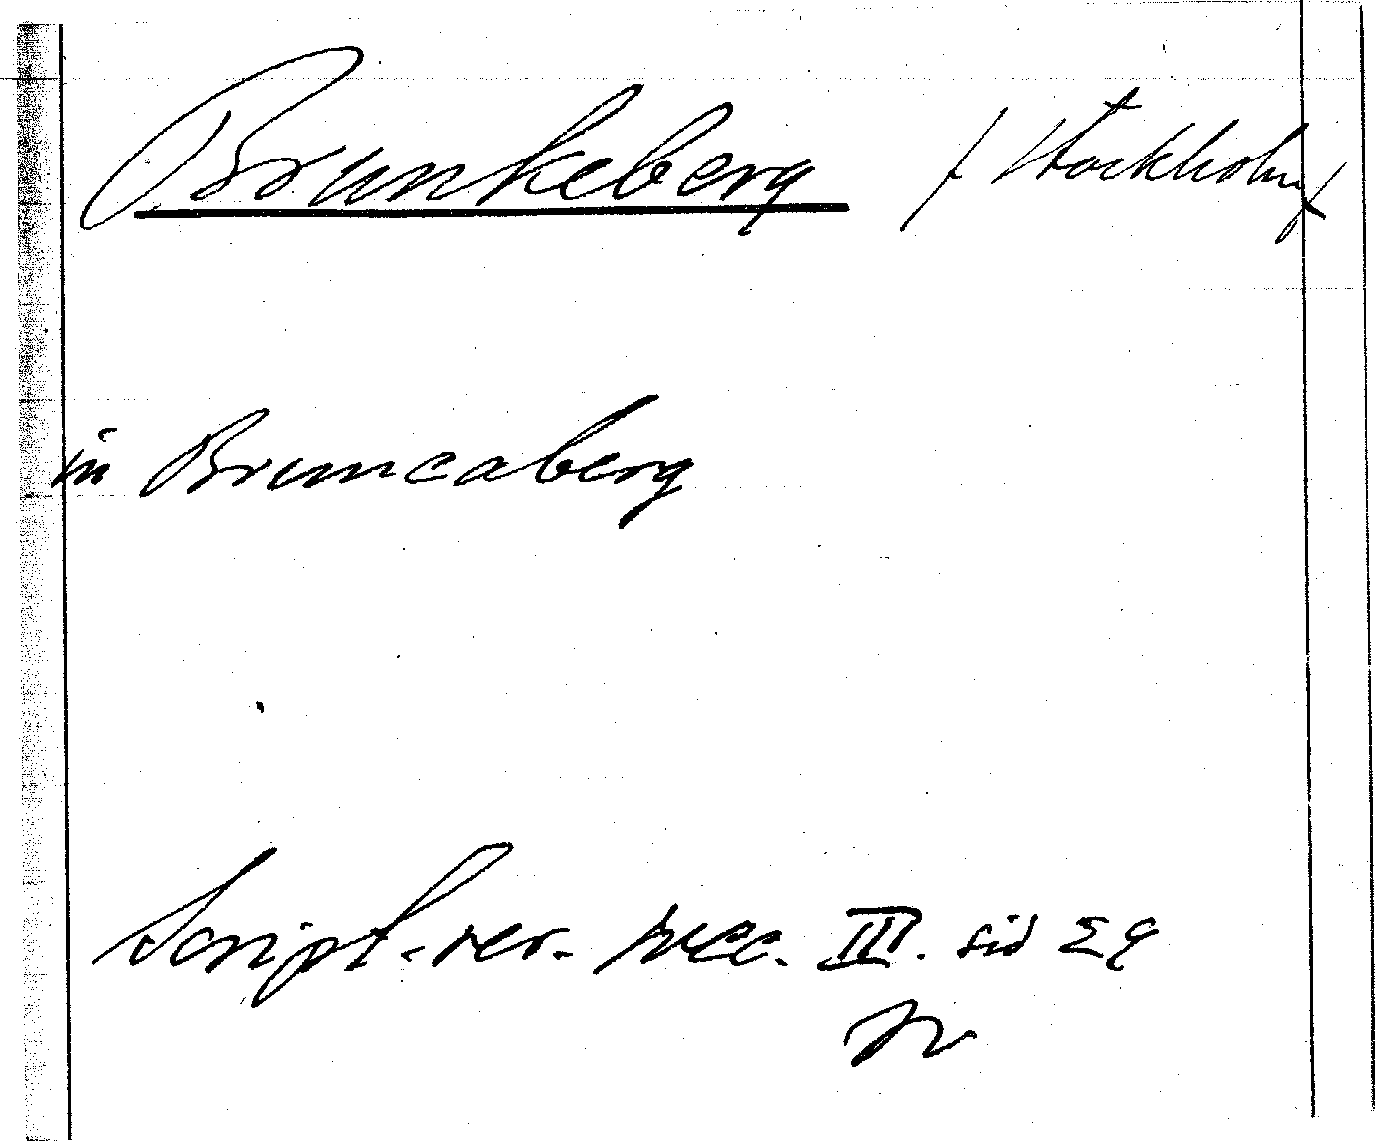 Brunkeberg (Stockholm)
in Bruncaberg
Script. rer. svec. III. sid 29